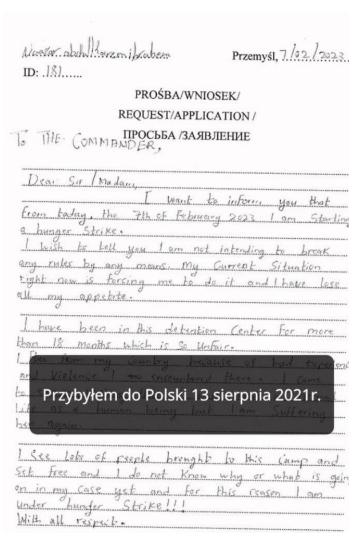 Przemyśl, 7/02/2023
ID: 181
PROŚBA/WNIOSEK/
REQUEST/APPLICATION /
ПРОСЬБА /ЗАЯВЛЕНИЕ
To THE COMMANDER,
Dear Sir / Madam,
I want to inform you that
from today, the 7th of February 2023 I am Starting
a hunger Strike.
I wish to tell you I am not intending to break
any rules by any means. My Current Situation
right now is forcing me to do it and I have lose
all my appetite.
I have been in this detention Center For more
than 18 months which is So Unfair.
I from my Country because of bad
and Violence I encountered there. I came
Przybyłem do Polski 13 sierpnia 2021r.
life as a human being but I am Suffering
here again.
I See Lots of people brought to this Camp and
Set Free and I do not Know why or what is goin
on in my Case yet and for this reason I am
Under hunger Strike!!!
With all respect.